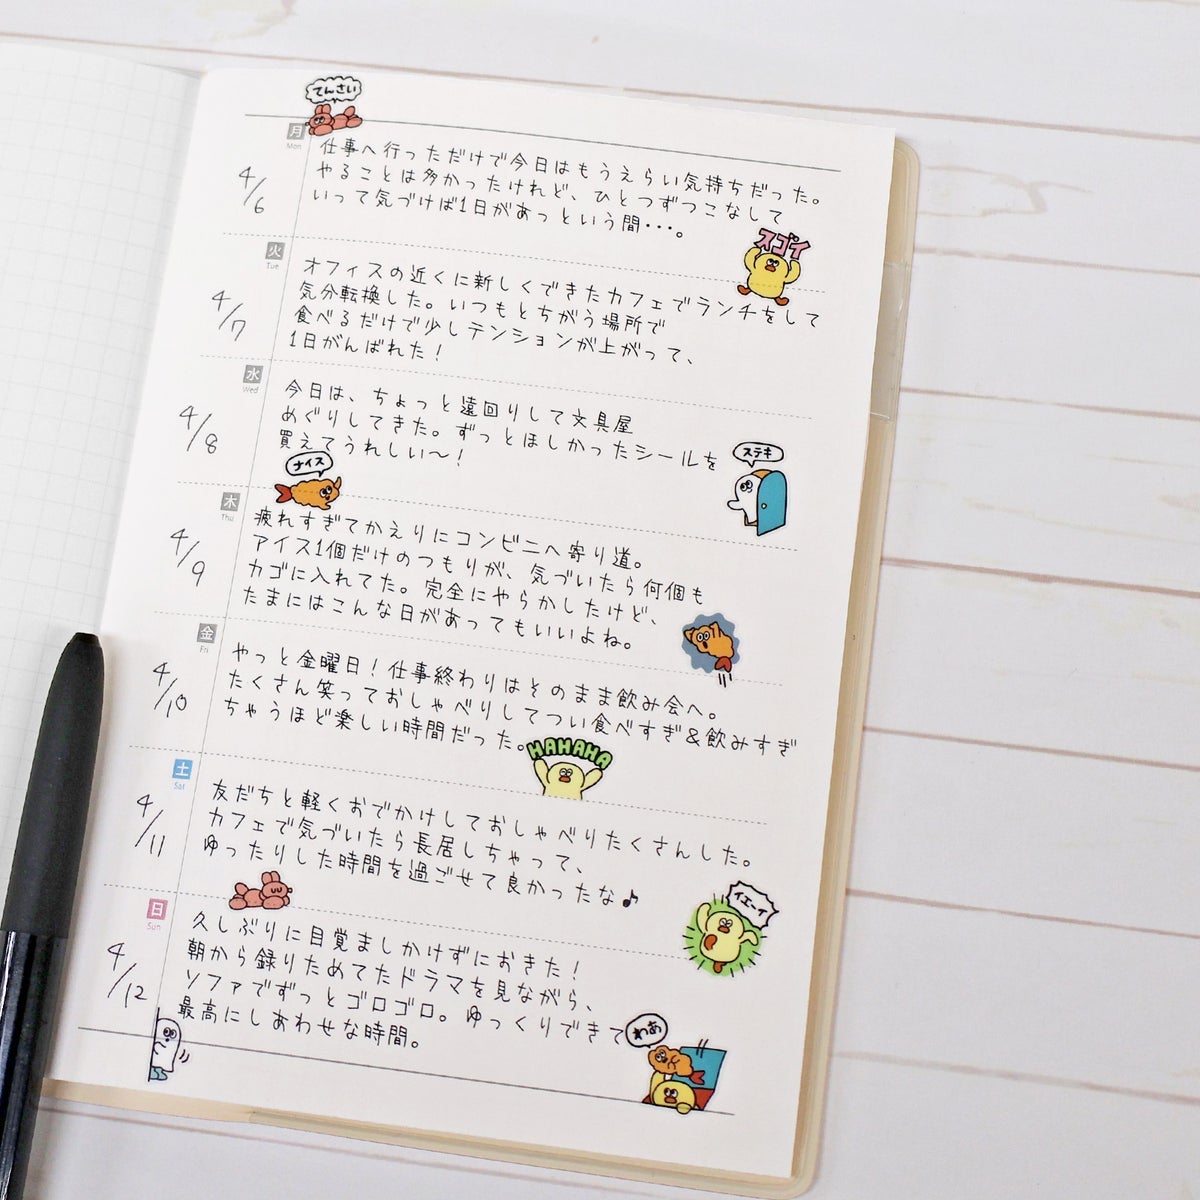 てんさい
月
Mon
4/6
仕事へ行っただけで今日はもうえらい気持ちだった。
やることは多かったけれど、ひとつずつこなして
いって気づけば1日があっという間･･･。
スゴイ
火
Tue
4/7
オフィスの近くに新しくできたカフェでランチをして
気分転換した。いつもとちがう場所で
食べるだけで少しテンションが上がって、
1日がんばれた！
水
Wed
4/8
今日は、ちょっと遠回りして文具屋
めぐりしてきた。ずっとほしかったシールを
買えてうれしい〜！
ステキ
ナイス
木
Thu
4/9
疲れすぎてかえりにコンビニへ寄り道。
アイス1個だけのつもりが、気づいたら何個も
カゴに入れてた。完全にやらかしたけど、
たまにはこんな日があってもいいよね。
金
Fri
4/10
やっと金曜日！仕事終わりはそのまま飲み会へ。
たくさん笑っておしゃべりしてつい食べすぎ&飲みすぎ
ちゃうほど楽しい時間だった。
HAHAHA
土
Sat
4/11
友だちと軽くおでかけしておしゃべりたくさんした。
カフェで気づいたら長居しちゃって、
ゆったりした時間を過ごせて良かったな♪
イエーイ
日
Sun
4/12
久しぶりに目覚ましかけずにおきた！
朝から録りためてたドラマを見ながら、
ソファでずっとゴロゴロ。ゆっくりできて
最高にしあわせな時間。
わあ